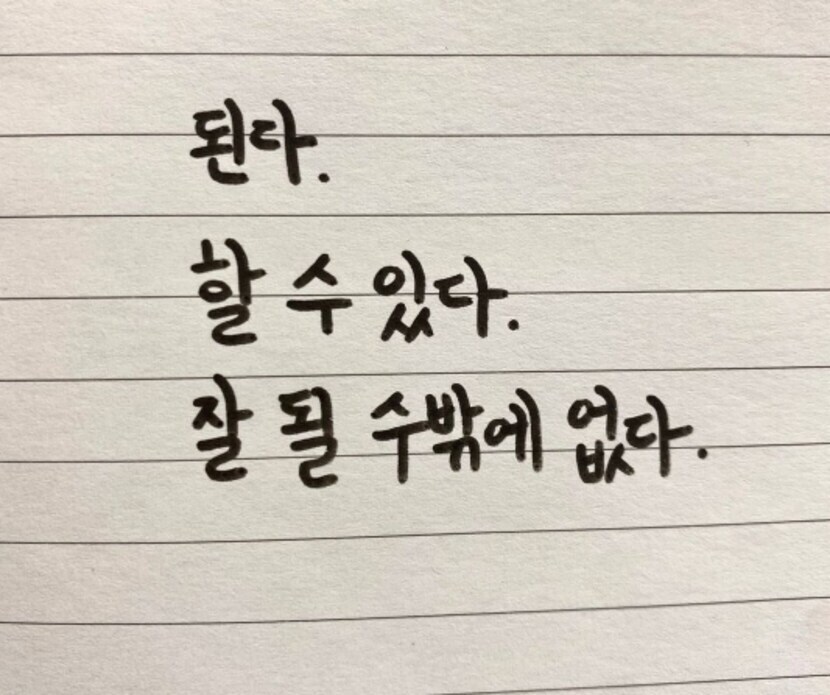 된다.
할 수 있다.
잘 될 수밖에 없다.